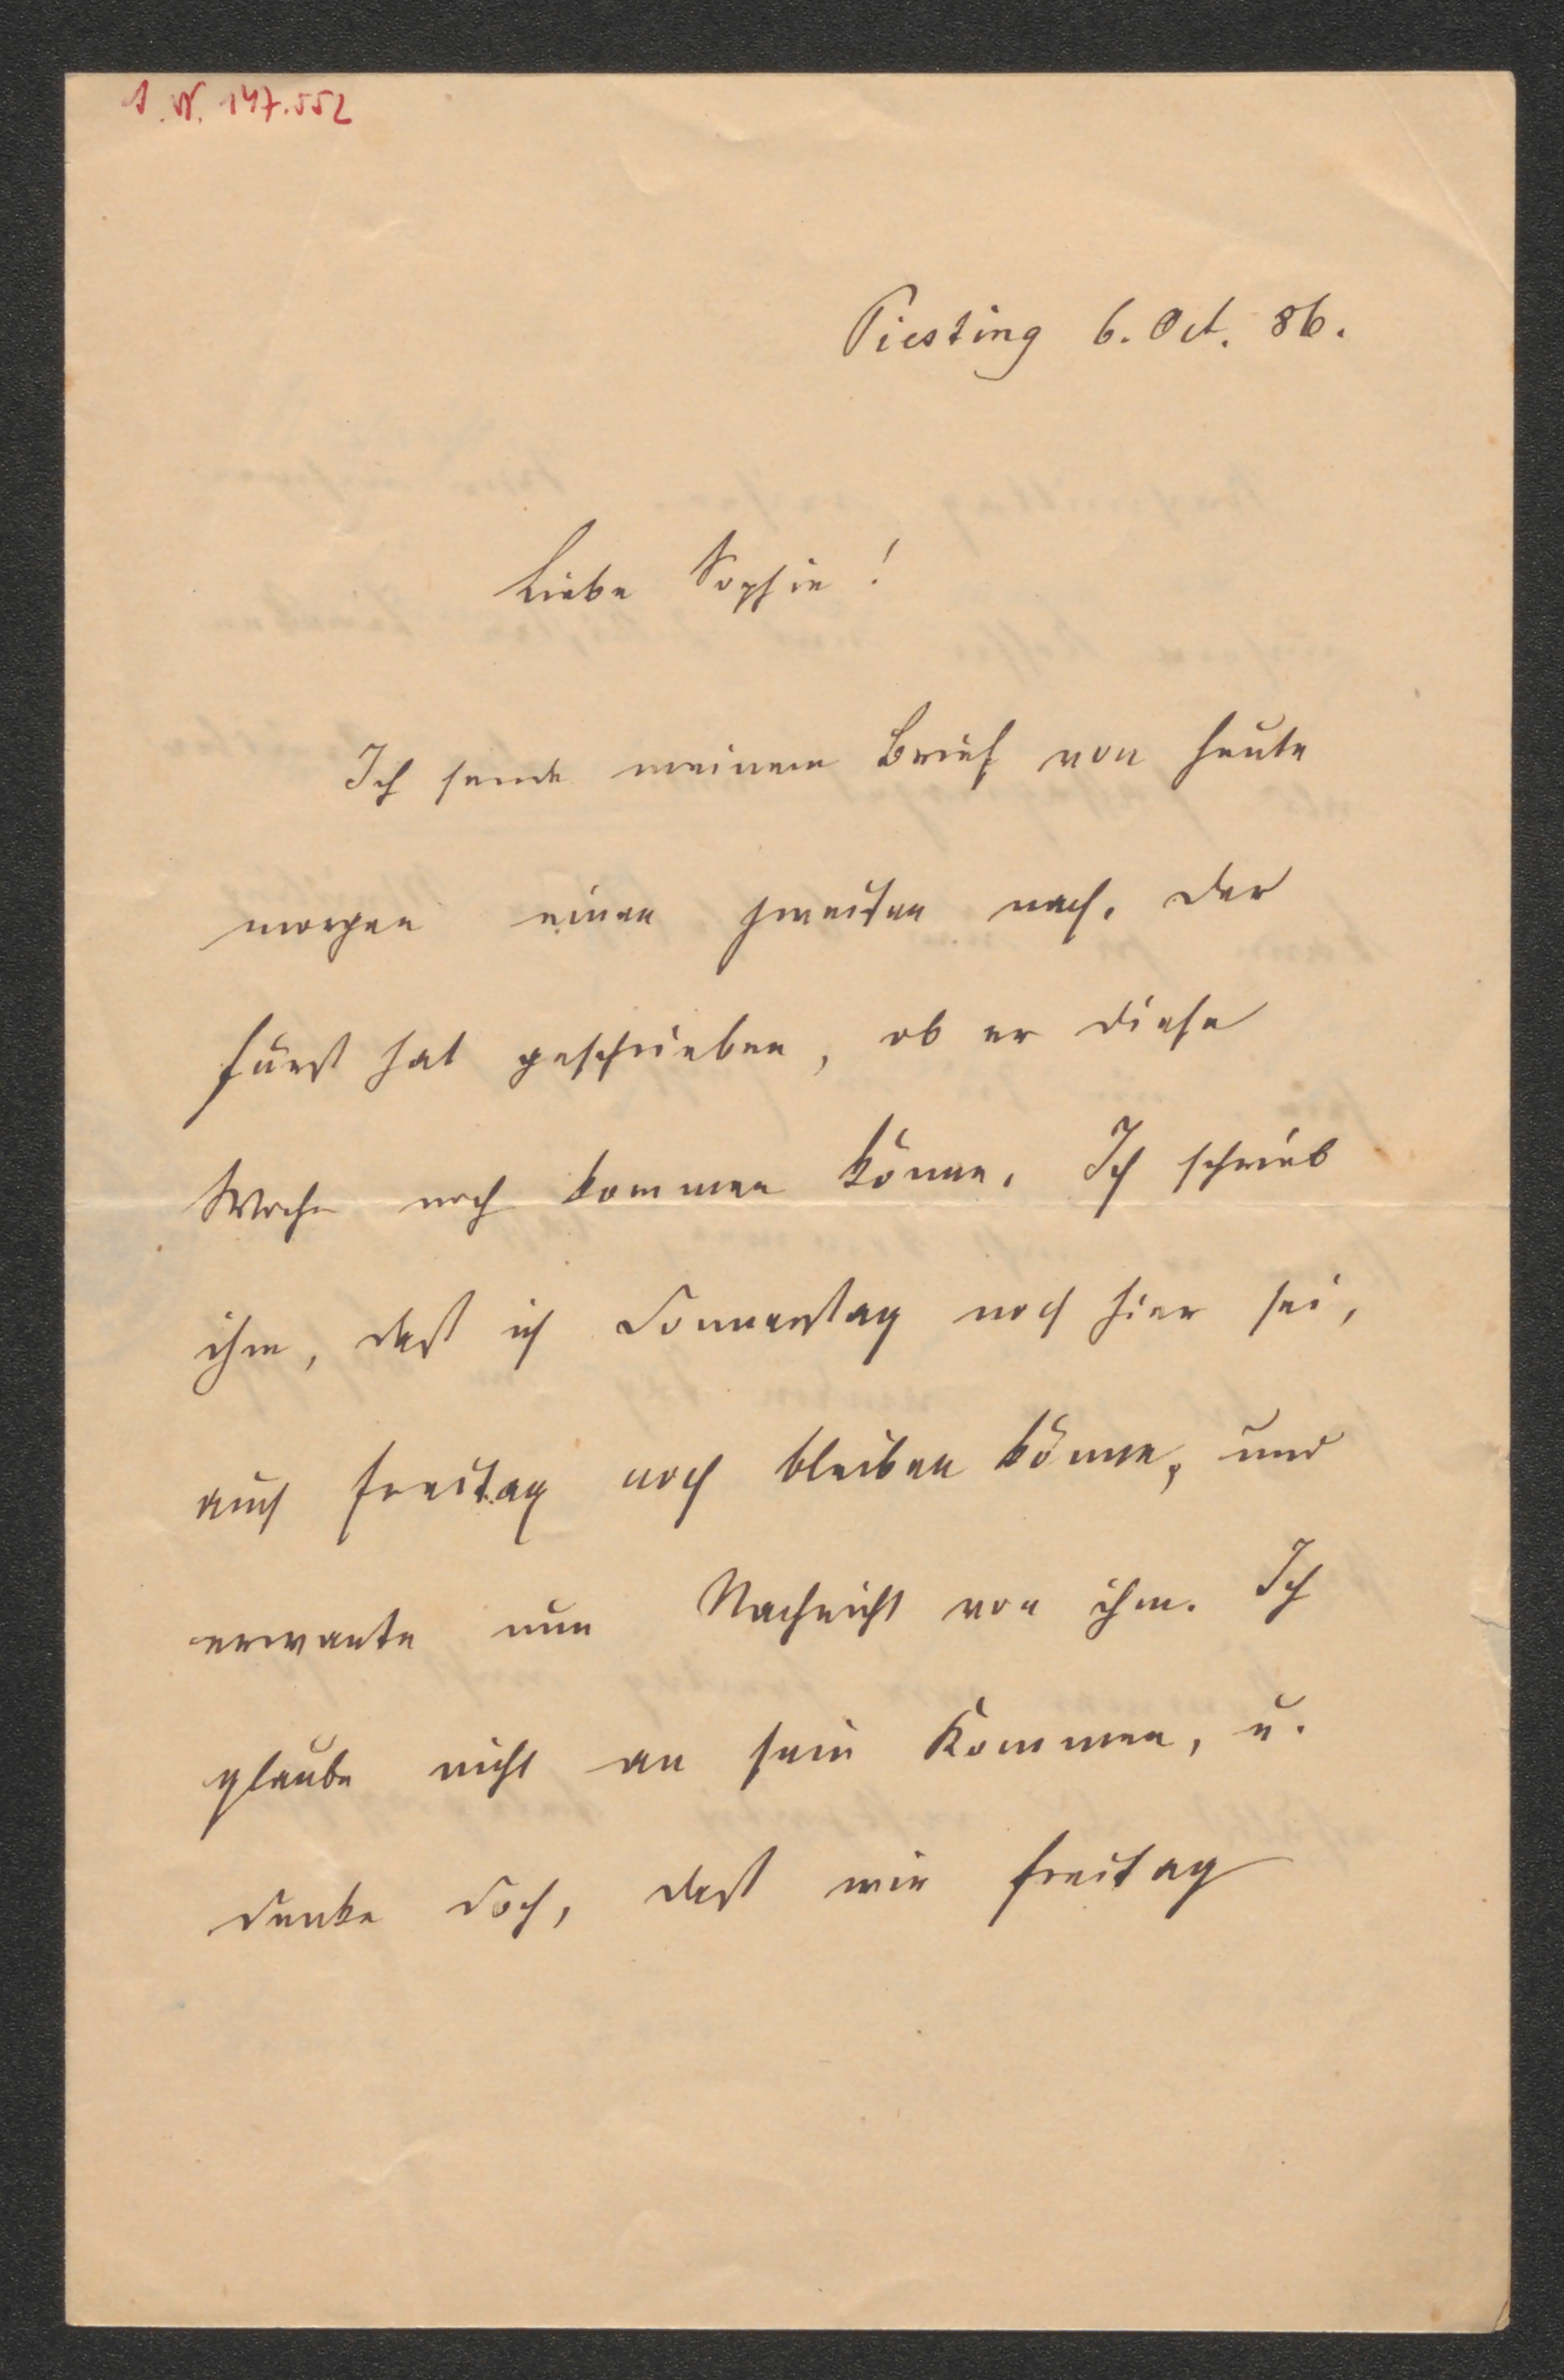 I.N. 147.552
Piesting 6. Oct. 86.
Liebe Sophie!
Ich sende meinem Brief von heute
morgen einen zweiten nach. Der
Fürst hat geschrieben, ob er diese
Woche noch kommen könne. Ich schrieb
ihm, daß ich Donnerstag noch hier sei,
auch Freitag noch bleiben könne, und
erwarte nun Nachricht von ihm. Ich
glaube nicht an sein Kommen, u.
denke doch, daß wir Freitag